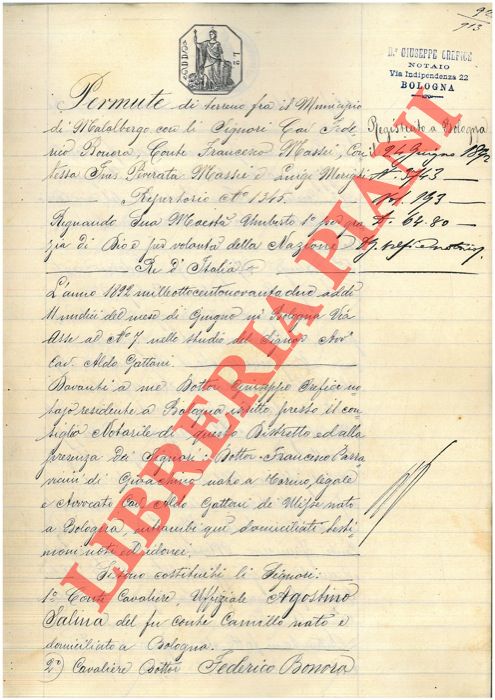 913
Dr. GIUSEPPE CREFICE
NOTAIO
Via Indipendenza 22
BOLOGNA
Permute di terreno fra il Municipio
di Malalbergo con li Signori Cav. Fede
rico Bonora, Conte Francesco Massei, Con
tessa Ines Massei e Luigi
Repertorio N.º 1345.
Registrato a Bologna
il 24 Giugno 1892
N.º 3743
193
64.80
Regnando Sua Maestà Umberto 1º per gra
zia di Dio e per volontà della Nazione
Re d'Italia
L'anno 1892 milleottocentonovantadue addì
11 undici del mese di Giugno in Bologna Via
Asse al Nº 7. nello studio del Signor Avv.
Cav. Aldo Gattoni.
Davanti a me Dottor Giuseppe Crefice no
tajo residente a Bologna iscritto presso il con
siglio Notarile di questo Distretto ed alla
presenza dei Signori: Dottor Francesco
di Gioachino nato a Torino, legale
e Avvocato Cav. Aldo Gattoni di Ulisse nato
a Bologna, entrambi qui domiciliati testi
moni noti ed idonei.
Si sono costituiti li Signori:
1º Conte Cavaliere, Uffiziale Agostino
Salina del fu conte Camillo nato e
domiciliato a Bologna.
2º) Cavaliere Dottor Federico Bonora
LIBRERIA PIANI